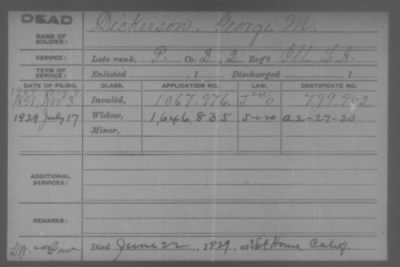 DEAD
NAME OF SOLDIER: Dickerson, George M.
SERVICE: Late rank, P. Co. I, 2 Reg't Ill L.A.
TERM OF SERVICE: Enlisted , 1 Discharged , 1
DATE OF FILING. CLASS. APPLICATION NO. LAW. CERTIFICATE NO.
1891 Nov 3 Invalid, 1067.976
1929 July 17 Widow, 1,646,835 5-1-20 a 2-27-30
Minor,
ADDITIONAL SERVICES:
REMARKS:
Died June 22, 1929, at Vet Home, Calif.